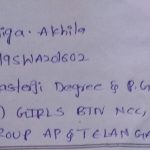 iga. Akhila
19SWA20602
asterji Degree & P.G
) GIRLS BTN NCC,
ROUP AP & TELANGA